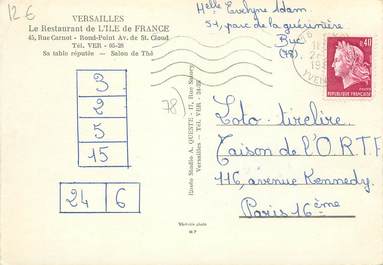 12 6
VERSAILLES
Le Restaurant de L'ILE de FRANCE
45, Rue Carnot - Rond-Point Av. de St. Cloud
Tél. VER - 05-28
Sa table réputée - Salon de Thé
3
2
5
15
24 6
78)
Etude Studio A. QUESTE - 17, Rue Satory
Versailles - Tél. VER -
Véritable photo
Melle Evelyne Adam
51, parc de la guérinière
Buc
(78).
0,40
REPUBLIQUE FRANÇAISE
Loto-tirelire
Maison de l'O.R.T.F
116, avenue Kennedy.
Paris 16ème